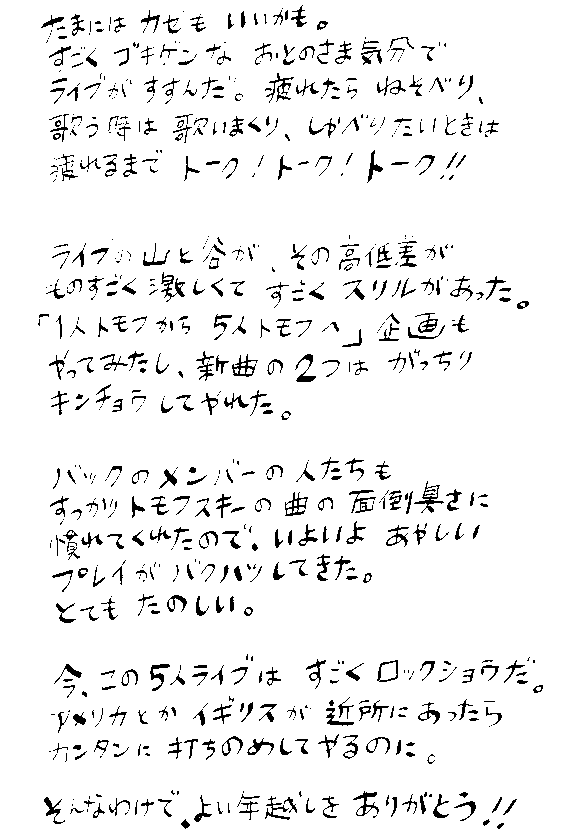 たまには カゼも いいかも。
すごく ゴキゲンな おとのさま気分で
ライブが すすんだ。疲れたら ねそべり、
歌う時は 歌いまくり、しゃべりたいときは
疲れるまで トーク！トーク！トーク！！
ライブの山と谷が、その高低差が
ものすごく激しくて すごく スリルがあった。
「1人トモフから 5人トモフへ」企画も
やってみたし、新曲の2つは がっちり
キンチョウしてやれた。
バックのメンバーの人たちも
すっかりトモフスキーの曲の面倒臭さに
慣れてくれたので、いよいよ あやしい
プレイが バクハツしてきた。
とても たのしい。
今、この5人ライブは すごく ロックショウだ。
アメリカとか イギリスが 近所に あったら
カンタンに 打ちのめしてやるのに。
そんなわけで、よい年越しを ありがとう！！